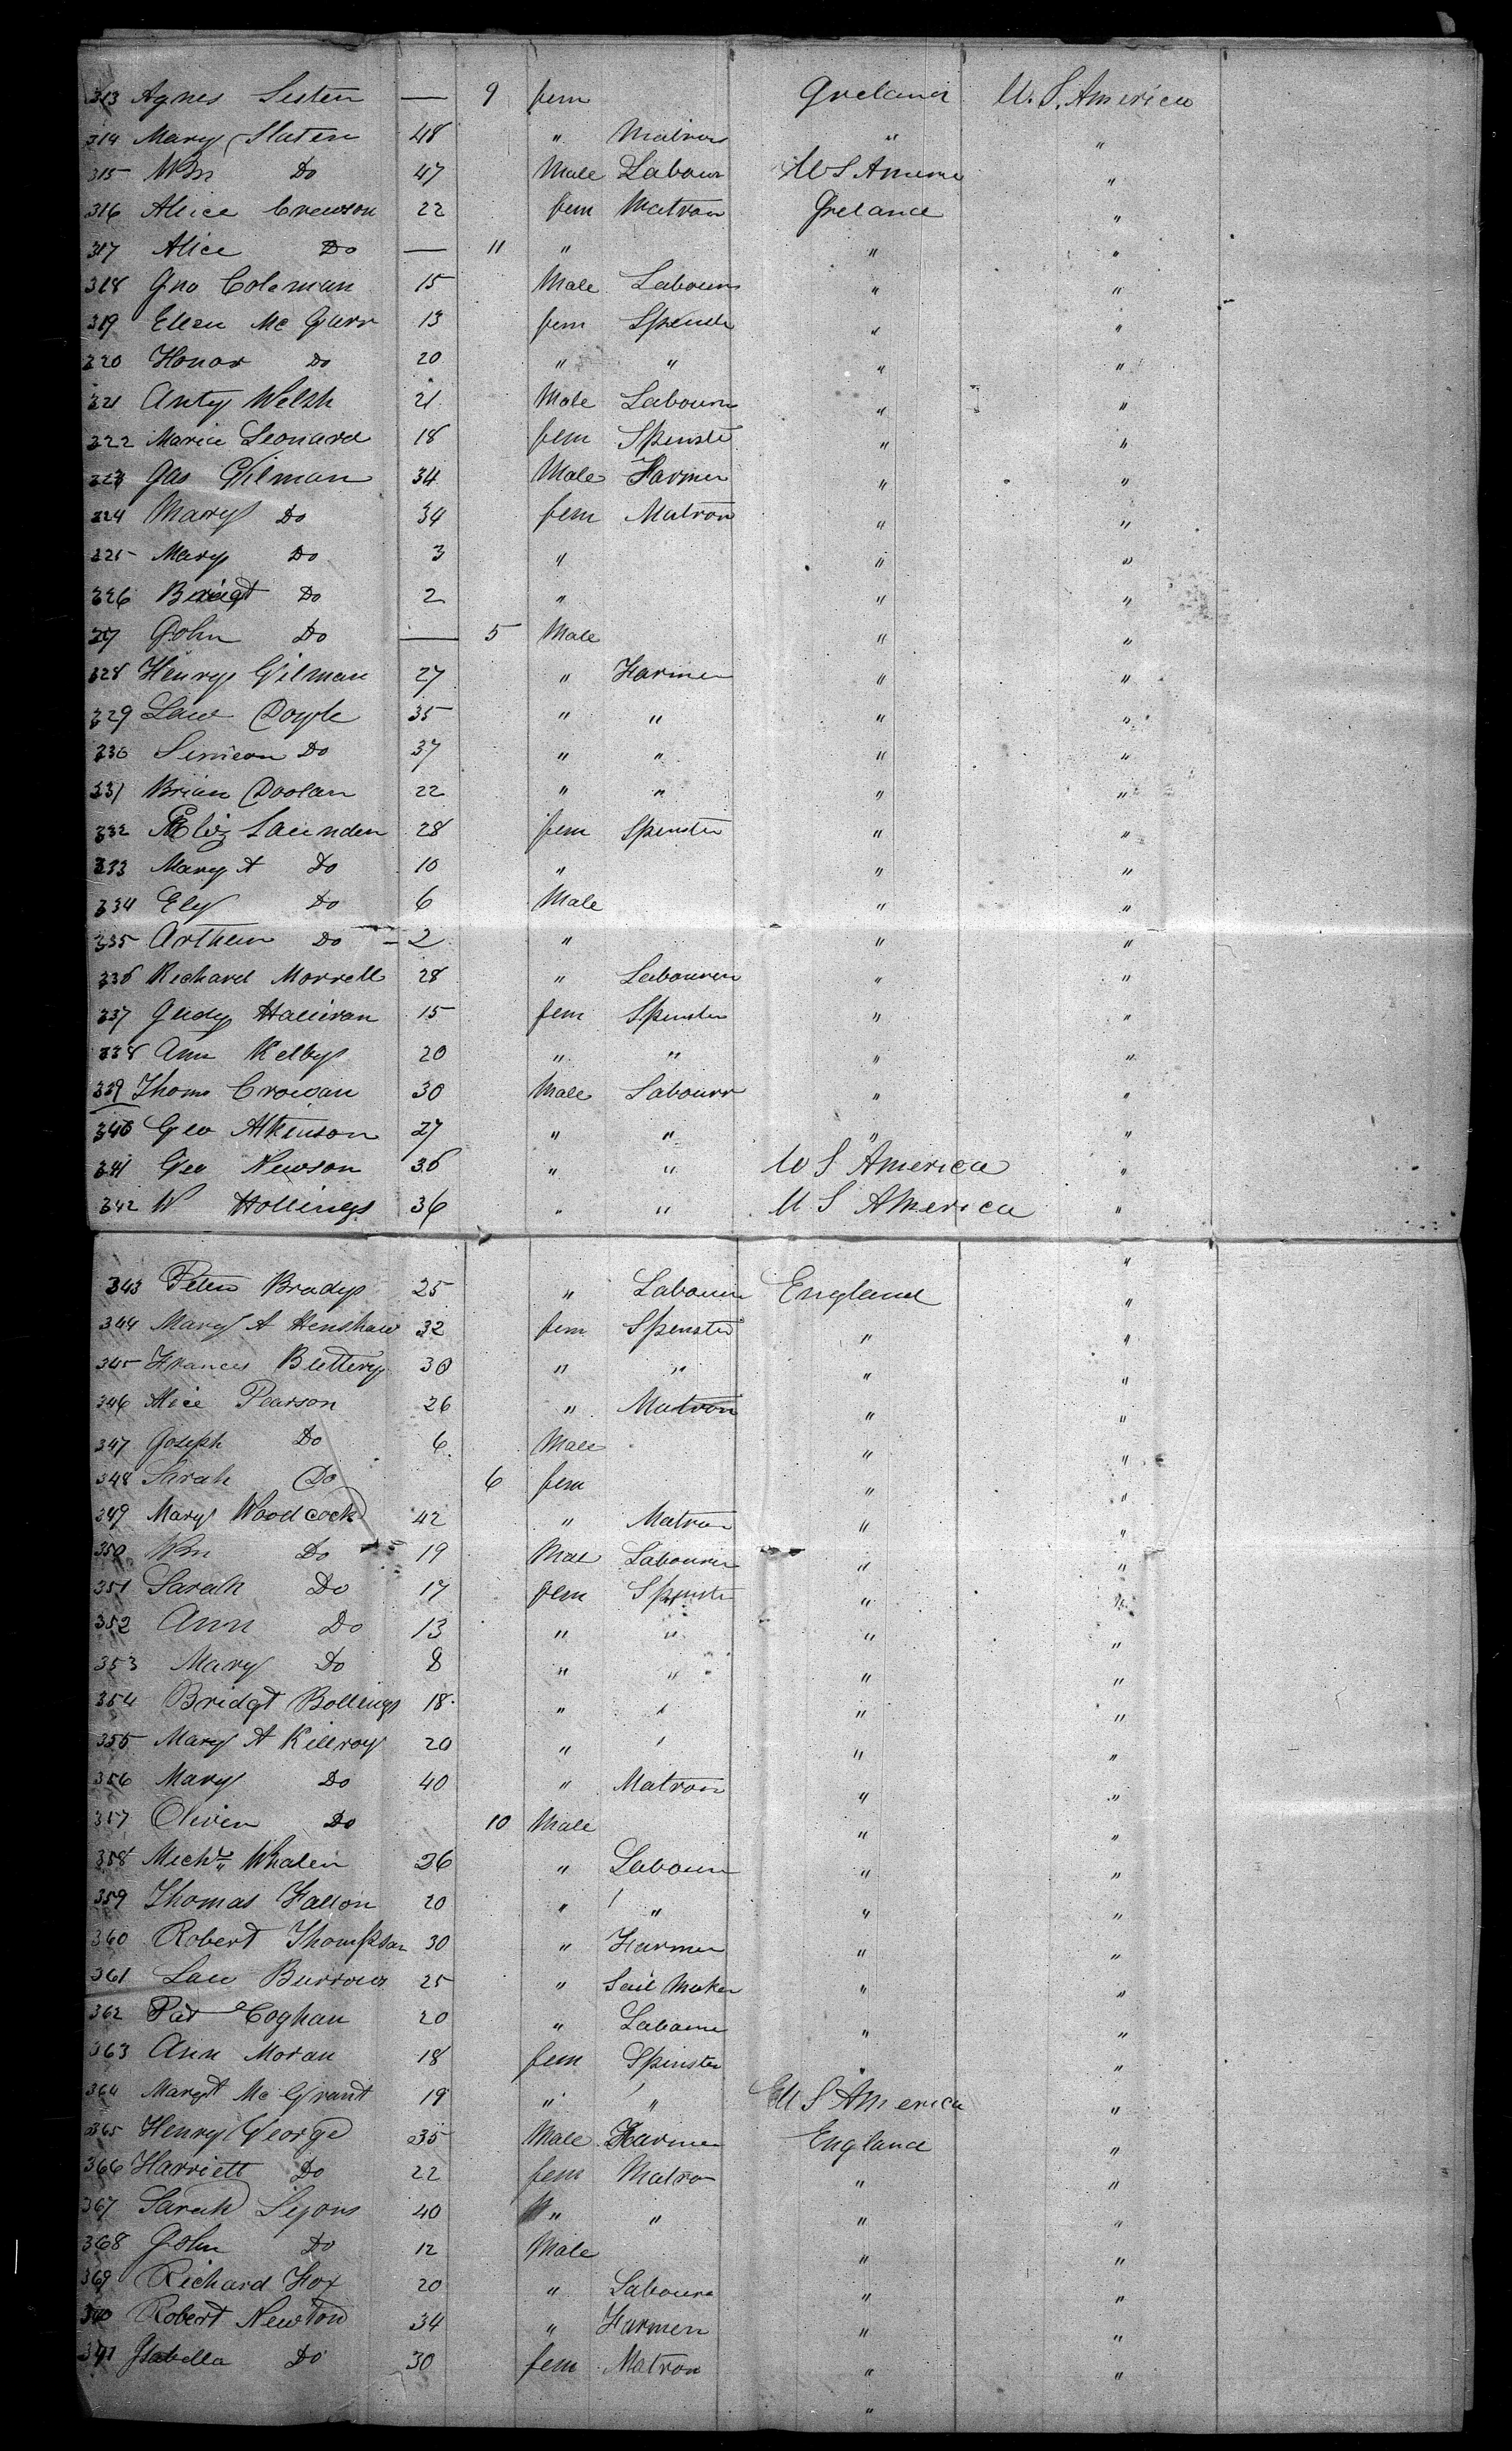 313 Agnes Sisten — 9 fem Ireland U.S. America
314 Mary Slaten 48 " Matron " "
315 Wm Do 47 Male Labour U S America "
316 Alice Crewson 22 fem Matron Ireland "
317 Alice Do — 11 " " "
318 Jno Coleman 15 Male Labour " "
319 Ellen Mc Garr 13 fem Spinste " "
320 Honor Do 20 " " " "
321 Anty Welsh 21 Male Labour " "
322 Maria Leonard 18 fem Spinste " "
323 Jas Gilman 34 Male Farmer " "
324 Mary Do 34 fem Matron " "
325 Mary Do 3 " " "
326 Do 2 " " "
327 John Do — 5 Male " "
328 Henry Gilman 27 " Farmer " "
329 Law Doyle 35 " " " "
330 Simeon Do 37 " " " "
331 Brian Doolan 22 " " " "
332 Eliz Saunden 28 fem Spinster " "
333 Mary A Do 10 " " "
334 Ely Do 6 Male " "
335 Arthur Do 2 " " "
336 Richard Morrell 28 " Labourer " "
337 Judy Halliran 15 fem Spinster " "
338 Ann Kelby 20 " " " "
339 Thoms Crowan 30 Male Labourr " "
340 Geo Atkinson 27 " " " "
341 Geo Newson 36 " " U S America "
342 W Hollings 36 " " U S America "
"
343 Peter Brady 25 " Labourer England "
344 Mary A Henshaw 32 fem Spenster " "
345 Frances Buttery 30 " " " "
346 Alice Pearson 26 " Matron " "
347 Joseph Do 6 Male " "
348 Sarah Do 6 fem " "
349 Mary Woodcock 42 " Matron " "
350 Wm Do 19 Male Labourer " "
351 Sarah Do 17 fem Spinste " "
352 Ann Do 13 " " " "
353 Mary Do 8 " " " "
354 Bridgt Bollings 18 " " " "
355 Mary A Killroy 20 " " " "
356 Mary Do 40 " Matron " "
357 Oliver Do 10 Male " "
358 Michl Whalen 26 " Labourer " "
359 Thomas Fallon 20 " " " "
360 Robert Thompson 30 " Farmer " "
361 Law Burrows 25 " Sail Maker " "
362 Pat Coghan 20 " Labourer " "
363 Ann Moran 18 fem Spinster " "
364 Margt Mc Grant 19 " " U S America "
365 Henry George 35 Male Farmer England "
366 Harriett Do 22 fem Matron " "
367 Sarah Lyons 40 " " " "
368 John Do 12 Male " "
369 Richard Fox 20 " Labourer " "
340 Robert Newton 34 " Farmer " "
341 Isabella Do 30 fem Matron " "
"